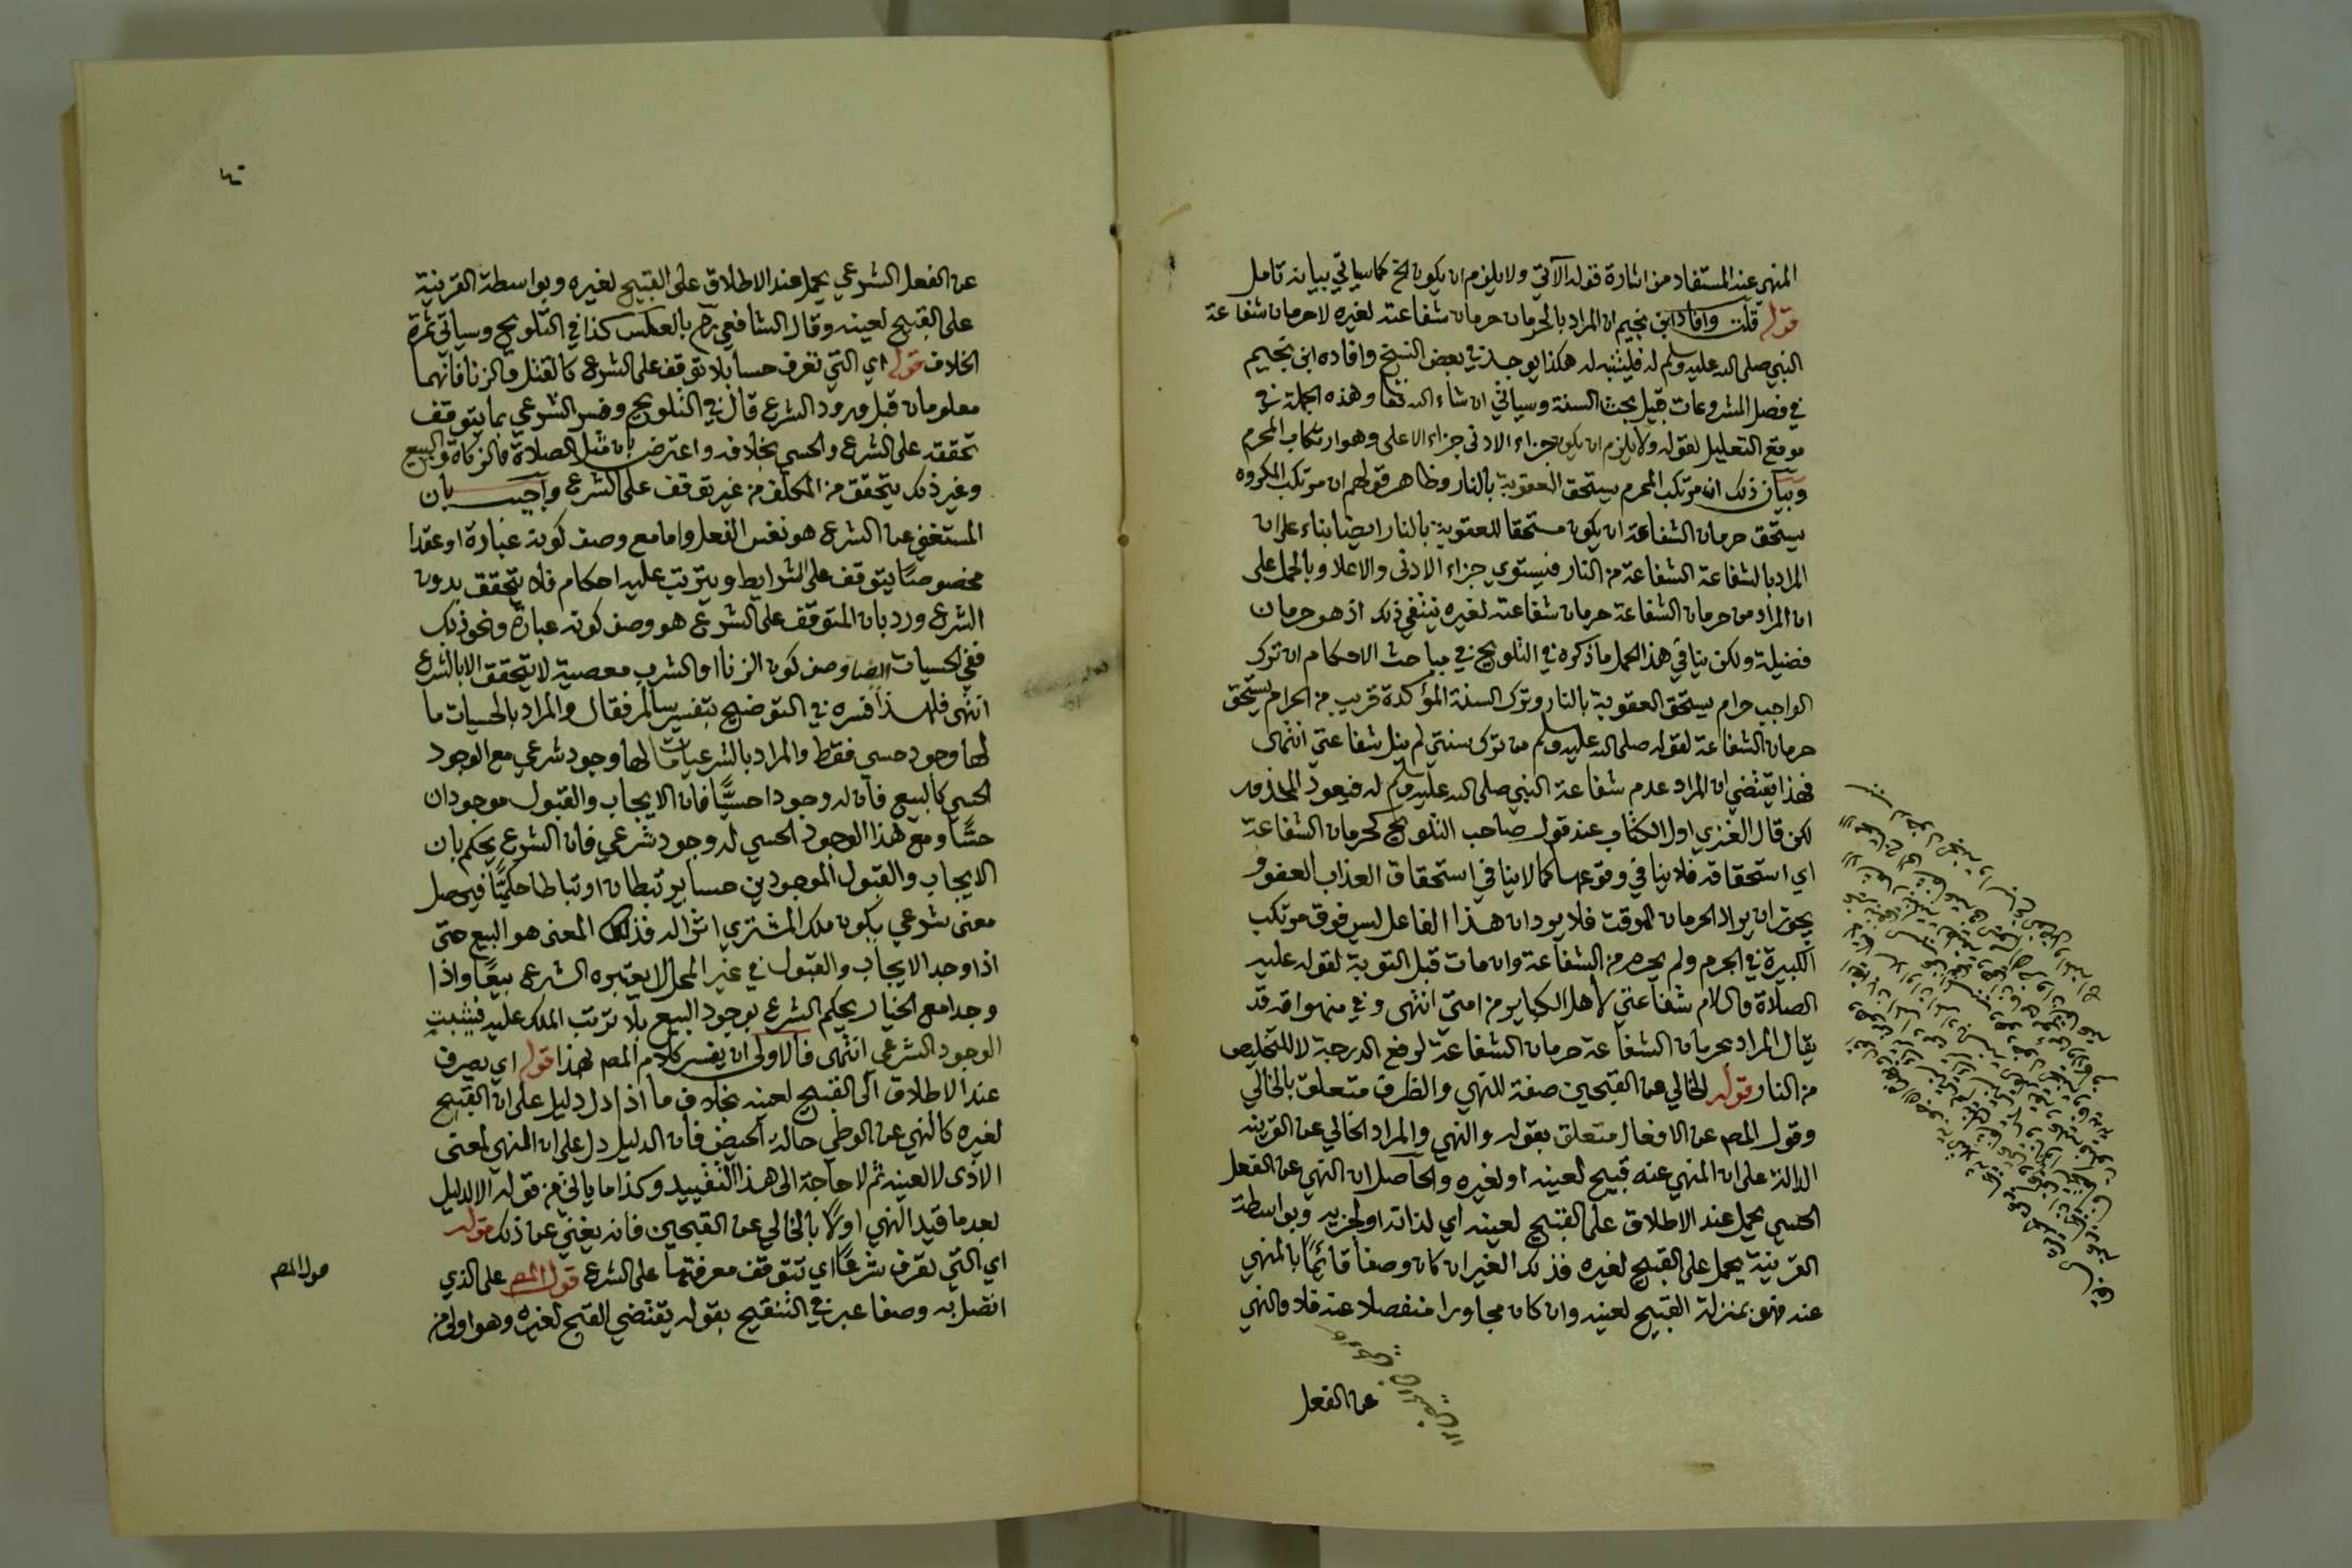 المنهي عنه المستفاد من اشارة قوله الآتي ولا يلزم ان يكون الخ كما سياتي بيانه تامل
قوله قلت وافاد ابن نجيم ان المراد بالحرمان حرمان شفاعته لغيره لا حرمان شفاعة
النبي صلى الله عليه وسلم له فليتنبه له هكذا يوجد في بعض النسخ وافاده ابن نجيم
في فصل المشروعات قبيل بحث السنة وسياتي ان شاء الله تعا وهذه الجملة في
موقع التعليل لقوله ولا يلزم ان يكون جزاء الادنى جزاء الاعلى وهو ارتكاب المحرم
وبيان ذلك ان مرتكب المحرم يستحق العقوبة بالنار وظاهر قولهم ان مرتكب المكروه
يستحق حرمان الشفاعة ان يكون مستحقا للعقوبة بالنار ايضا بناء على ان
المراد بالشفاعة الشفاعة من النار فيستوي جزاء الادنى والاعلا وبالحمل على
ان المراد من حرمان الشفاعة حرمان شفاعته لغيره ينتفي ذلك اذ هو حرمان
فضيلة ولكن ينافي هذا الحمل ما ذكره في التلويح في مباحث الاحكام ان ترك
الواجب حرام يستحق العقوبة بالنار وترك السنة المؤكدة قريب من الحرام يستحق
حرمان الشفاعة لقوله صلى الله عليه وسلم من ترك سنتي لم ينل شفاعتي انتهى
فهذا يقتضي ان المراد عدم شفاعة النبي صلى الله عليه وسلم له فيعود المحذور
لكن قال الغزي اول الكتاب عند قول صاحب التلويح كحرمان الشفاعة
اي استحقاقه فلا ينافي وقوعها كما لا ينافي استحقاق العذاب العفو و
يجوز ان يراد الحرمان الموقت فلا يرد ان هذا الفاعل ليس فوق مرتكب
الكبيرة في الجرم ولم يحرم من الشفاعة وان مات قبل التوبة لقوله عليه
الصلاة والسلام شفاعتي لأهل الكباير من امتي انتهى وفي منهواته قد
يقال المراد بحرمان الشفاعة حرمان الشفاعة لرفع الدرجة لا للتخليص
من النار قوله الخالي عن القبحين صفة للنهي والظرف متعلق بالخالي
وقول المص عن الافعال متعلق بقوله والنهي والمراد الخالي عن القرينه
الدالة على ان المنهي عنه قبيح لعينه او لغيره والحاصل ان النهي عن الفعل
الحسي يحمل عند الاطلاق على القبيح لعينه اي لذاته او لجزيه وبواسطة
القرينة يحمل على القبيح لغيره فذلك الغير ان كان وصفا قائمًا بالمنهي
عنه فهو بمنزلة القبيح لعينه وان كان مجاورا منفصلا عنه فلا والنهي
عن الفعل
عن الفعل الشرعي يحمل عند الاطلاق على القبيح لغيره وبواسطة القرينة
على القبيح لعينه وقال الشافعي رحم بالعكس كذا في التلويح وسياتي ثمرة
الخلاف قوله اي التي تعرف حسا بلا توقف على الشرع كالقتل والزنا فانهما
معلومان قبل ورود الشرع قال في التلويح وفسر الشرعي بما يتوقف
تحققه على الشرع والحسي بخلافه واعترض بان مثل الصلاة والزكاة والبيع
وغير ذلك يتحقق من المكلف من غير توقف على الشرع واجيب بان
المستغني عن الشرع هو نفس الفعل واما مع وصف كونه عبادة او عقدا
مخصوصًا يتوقف على الشرايط ويترتب عليه احكام فلا يتحقق بدون
الشرع ورد بان المتوقف على الشرع هو وصف كونه عبادة ونحو ذلك
ففي الحسيات ايضا وصف كون الزنا او الشرب معصية لا يتحقق الا بالشرع
انتهى فلهذا فسره في التوضيح بتفسير سالم فقال والمراد بالحسيات ما
لها وجود حسي فقط والمراد بالشرعيات ما لها وجود شرعي مع الوجود
الحسي كالبيع فان له وجودا حسيًّا فان الايجاب والقبول موجودان
حسًّا ومع هذا الوجود الحسي له وجود شرعي فان الشرع يحكم بان
الايجاب والقبول الموجودين حسا يرتبطان ارتباطا حكميًّا فيحصل
معنى شرعي يكون ملك المشتري اثرا له فذلك المعنى هو البيع حتى
اذا وجد الايجاب والقبول في غير المحل لا يعتبره الشرع بيعًا واذا
وجدا مع الخيار يحكم الشرع بوجود البيع بلا ترتب الملك عليه فيثبت
الوجود الشرعي انتهى فالاولى ان يفسر كلام المص بهذا قوله اي يصرف
عند الاطلاق الى القبيح لعينه بخلاف ما اذا دل دليل على ان القبيح
لغيره كالنهي عن الوطي حالة الحيض فان الدليل دل على ان المنهي لمعنى
الاذى لا لعينه ثم لا حاجة الى هذا التقييد وكذا ما ياتي من قوله الا لدليل
بعد ما قيد النهي اولًا بالخالي عن القبحين فانه يغني عن ذلك قوله
اي التي تعرف شرعًا اي تتوقف معرفتها على الشرع قول المص على الذي
اتصل به وصفا عبر في التنقيح بقوله يقتضي القبح لغيره وهو اولى من
قول المص